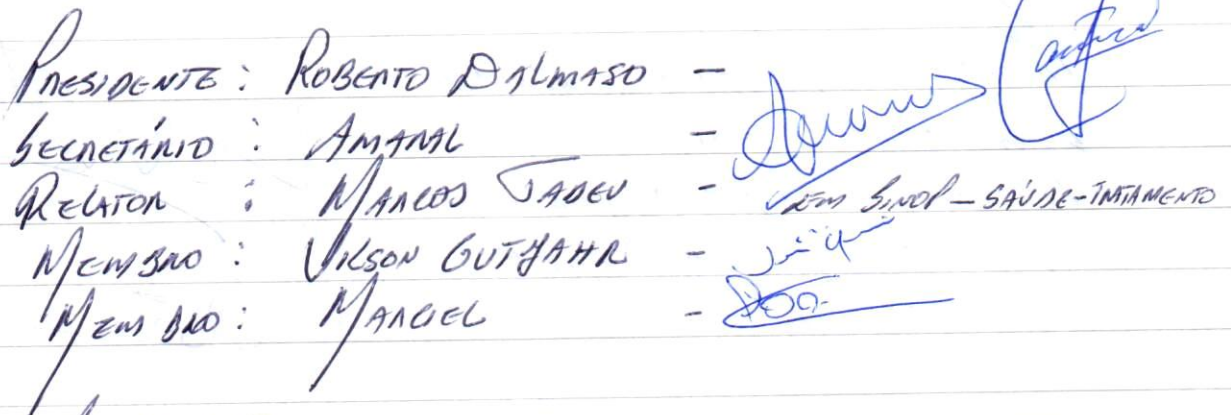 PRESIDENTE: ROBERTO DALMASO -
SECRETÁRIO : AMARAL -
RELATOR : MARCOS TADEU - EM SINOP - SAÚDE - TRATAMENTO
MEMBRO : VILSON GUTJAHR -
MEMBRO : MARCIEL -